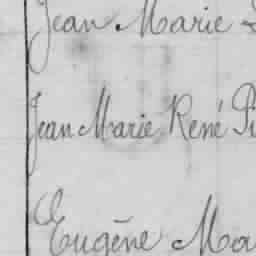 Jean Marie
Jean Marie René Pi
Eugène Ma